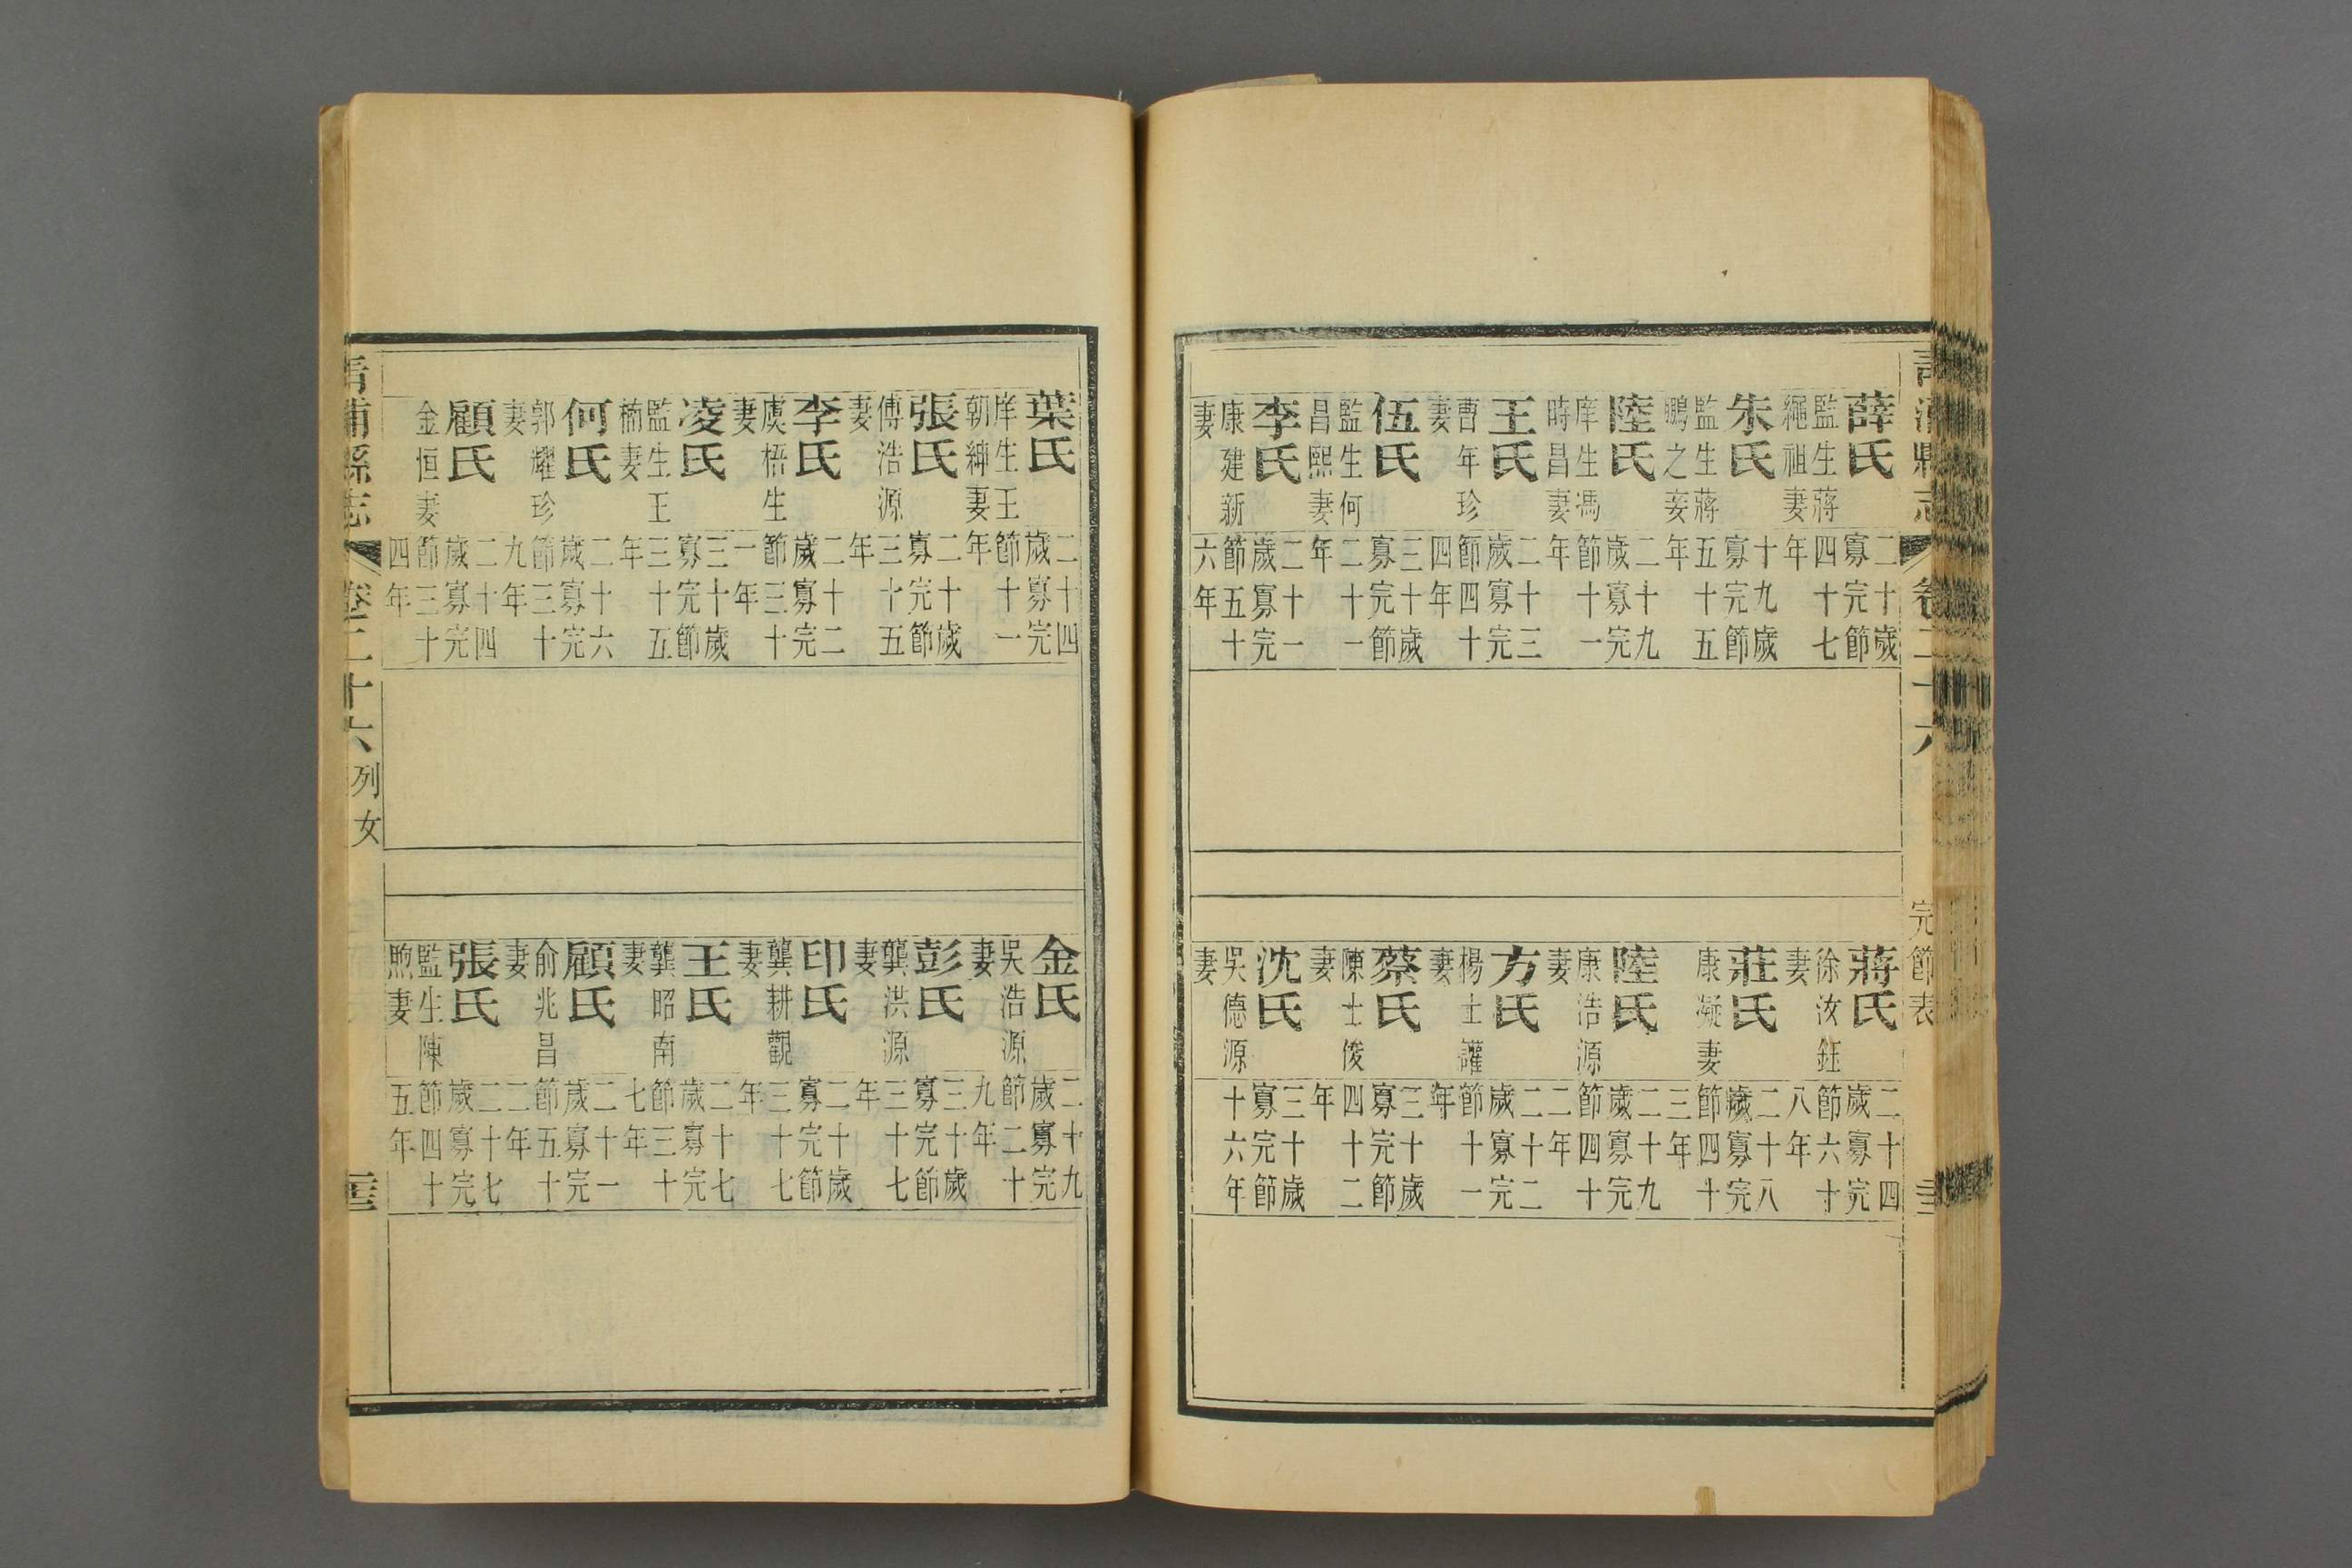 青浦縣志
卷二十六
完節表
薛氏
監生蔣
繩祖妻
二十歲
寡完節
四十七
年
朱氏
監生蔣
鵬之妾
十九歲
寡完節
五十五
年
陸氏
庠生馮
時昌妻
二十九
歲寡完
節十一
年
王氏
曹年珍
妻
二十三
歲寡完
節四十
四年
伍氏
監生何
昌熙妻
三十歲
寡完節
二十一
年
李氏
康建新
妻
二十一
歲寡完
節五十
六年
蔣氏
徐汝鈺
妻
二十四
歲寡完
節六十
八年
莊氏
康凝妻
二十八
歲寡完
節四十
三年
陸氏
康浩源
妻
二十九
歲寡完
節四十
二年
方氏
楊士
妻
二十二
歲寡完
節十一
年
蔡氏
陳士俊
妻
三十歲
寡完節
四十二
年
沈氏
吳德源
妻
三十歲
寡完節
十六年
葉氏
庠生王
朝紳妻
二十四
歲寡完
節十一
年
張氏
傅浩源
妻
二十歲
寡完節
三十五
年
李氏
虞梧生
妻
二十二
歲寡完
節三十
一年
凌氏
監生王
楠妻
三十歲
寡完節
三十五
年
何氏
郭耀珍
妻
二十六
歲寡完
節三十
九年
顧氏
金恒妻
二十四
歲寡完
節三十
四年
金氏
吳浩源
妻
二十九
歲寡完
節二十
九年
彭氏
龔洪源
妻
三十歲
寡完節
三十七
年
印氏
龔耕觀
妻
二十歲
寡完節
三十七
年
王氏
龔昭南
妻
二十七
歲寡完
節三十
七年
顧氏
俞兆昌
妻
二十一
歲寡完
節五十
二年
張氏
監生陳
煦妻
二十七
歲寡完
節四十
五年
青浦縣志
卷二十六
列女